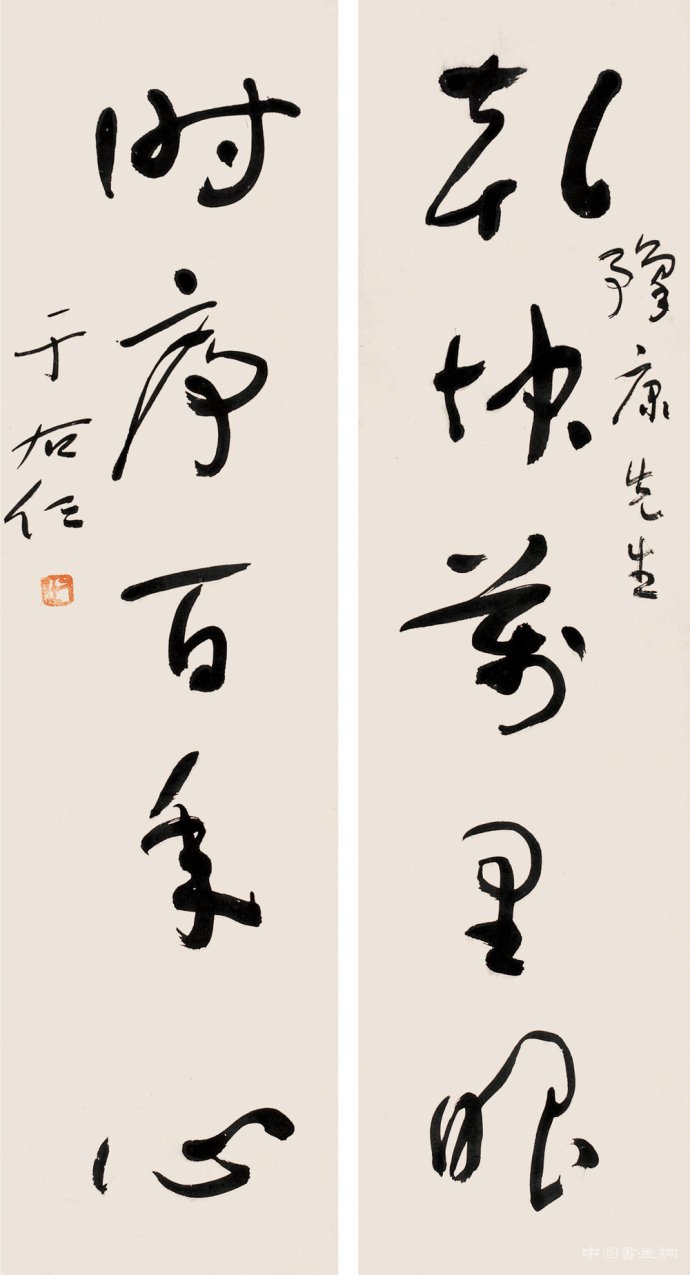 乾坤萬里眼
豫康先生
時序百年心
于右任
中国書画网